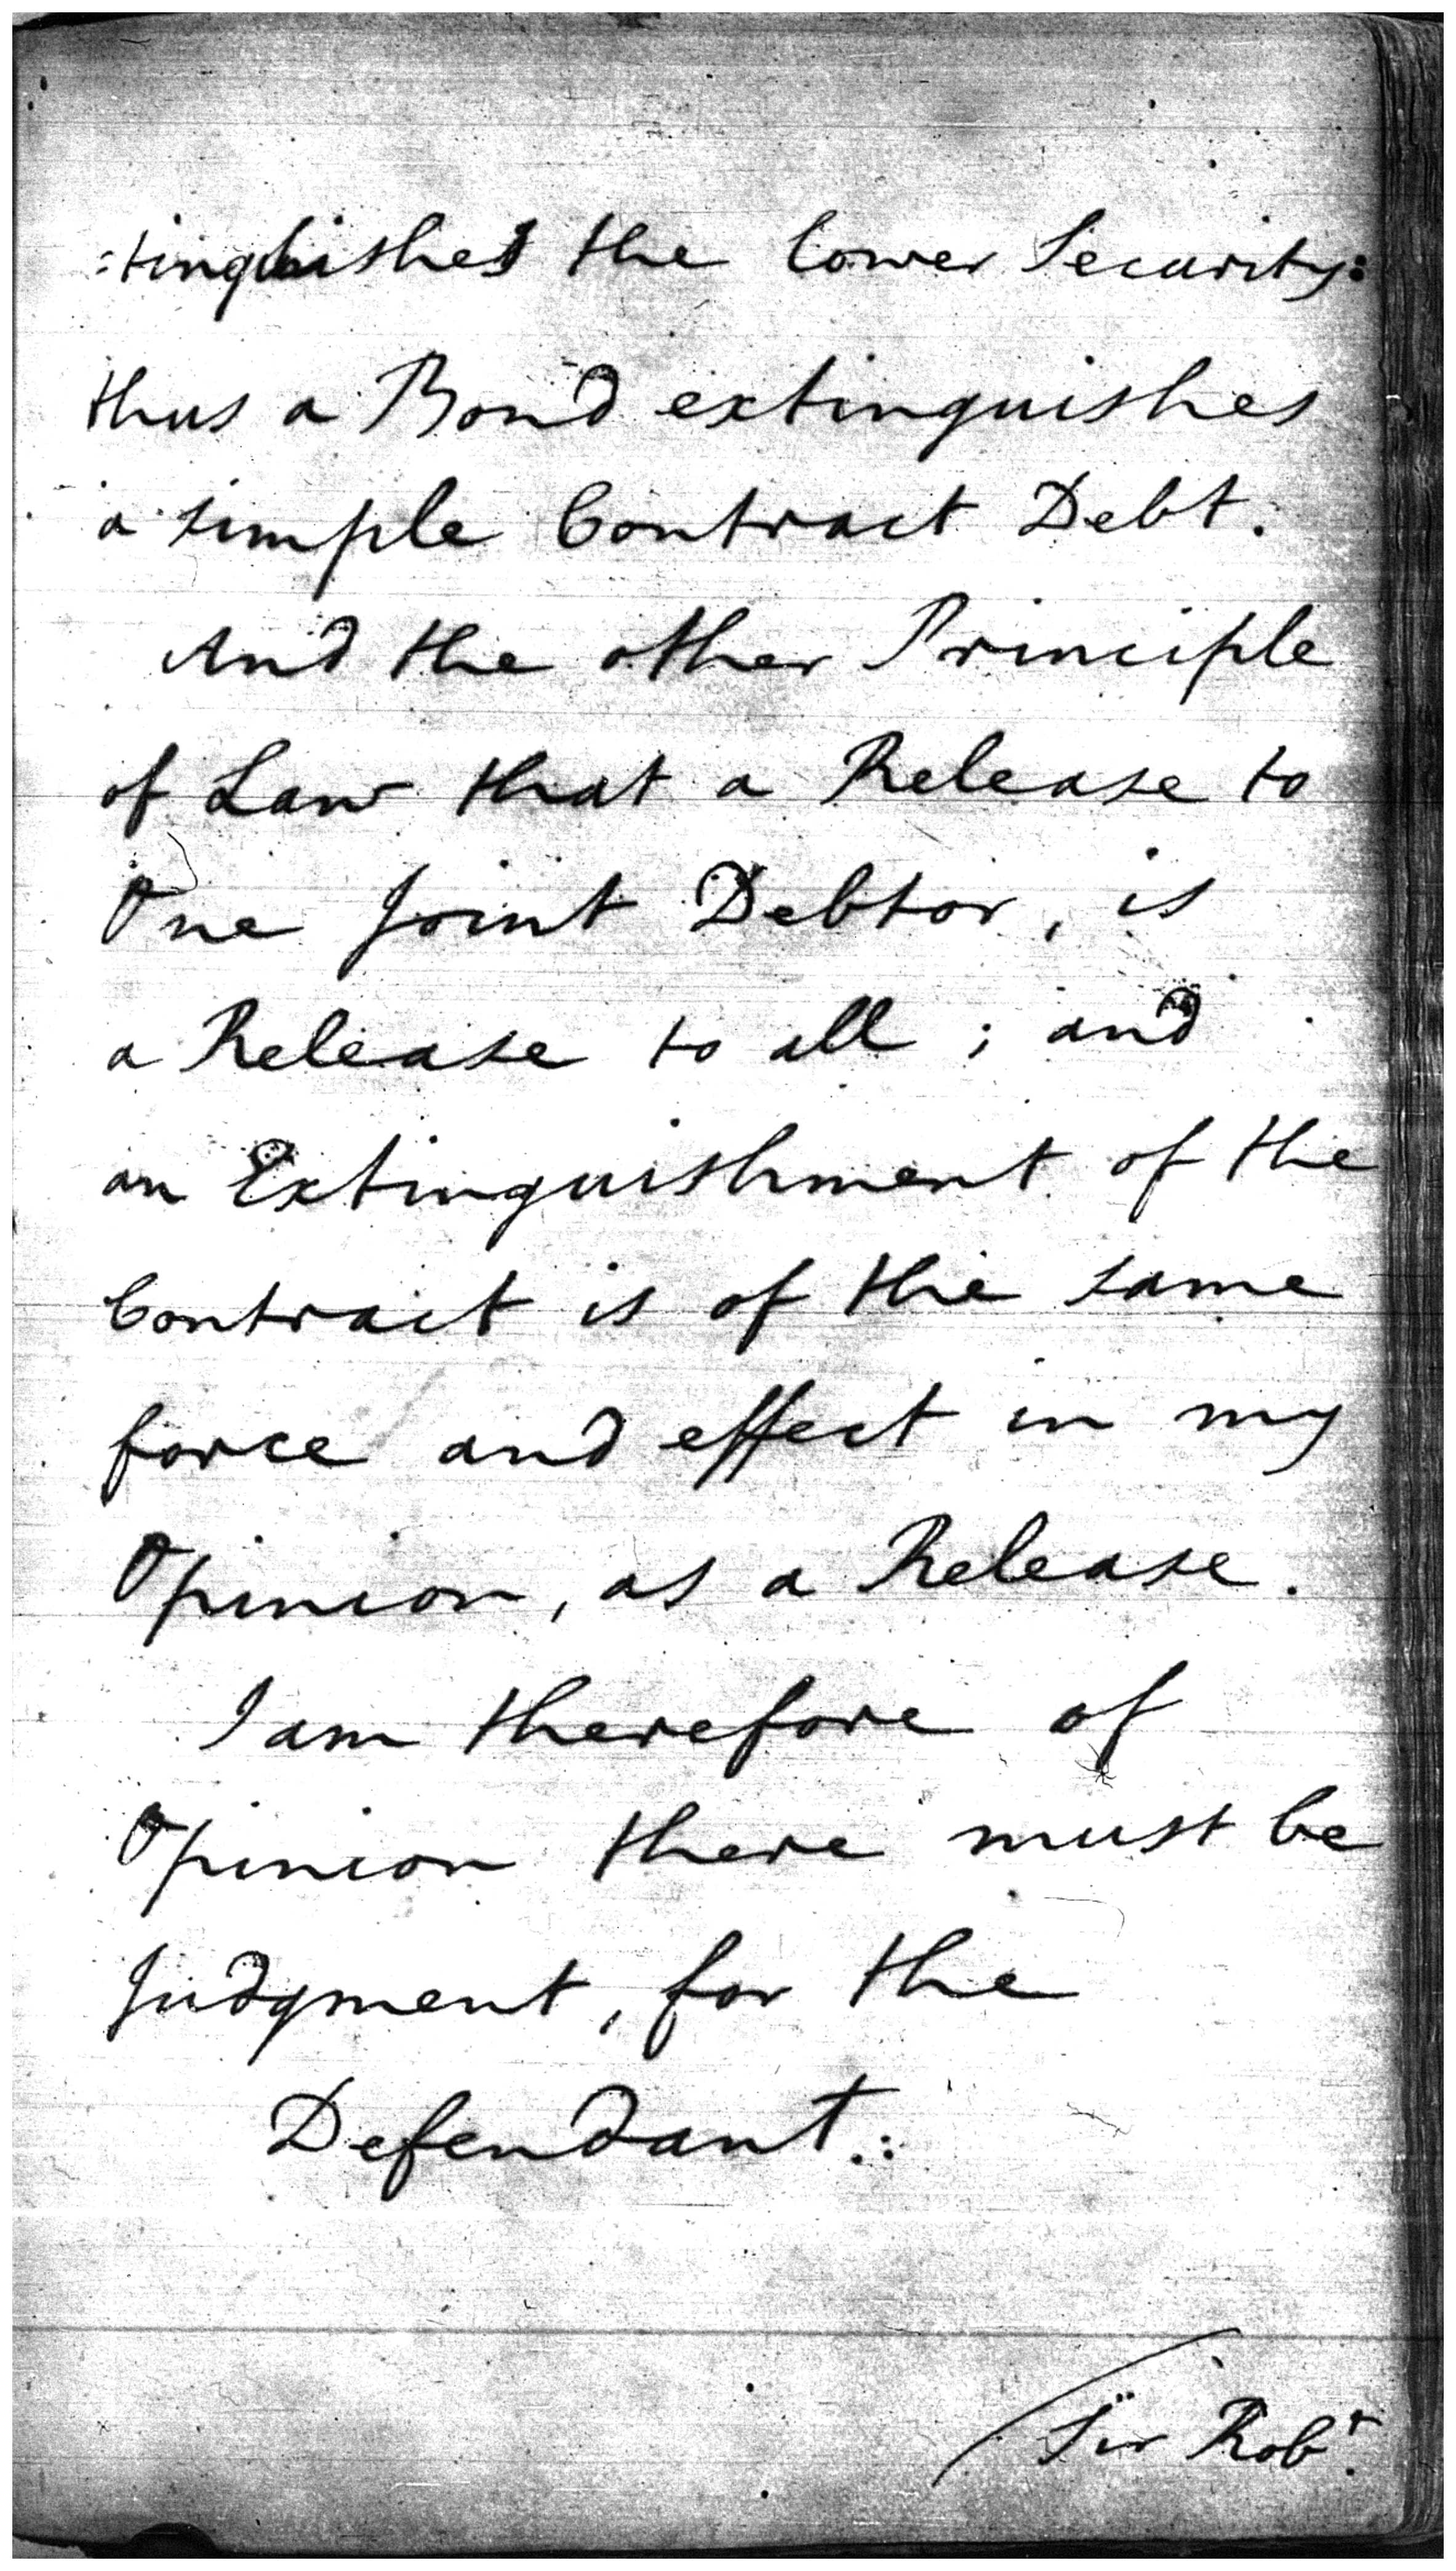 :tinguishes the lower Security:
thus a Bond extinguishes
a simple Contract Debt.
And the other Principle
of Law that a Release to
One Joint Debtor, is
a Release to all; and
an Extinguishment of the
Contract is of the same
force and effect in my
Opinion, as a Release.
I am therefore of
Opinion there must be
Judgment, for the
Defendant.:
Sir Robt.